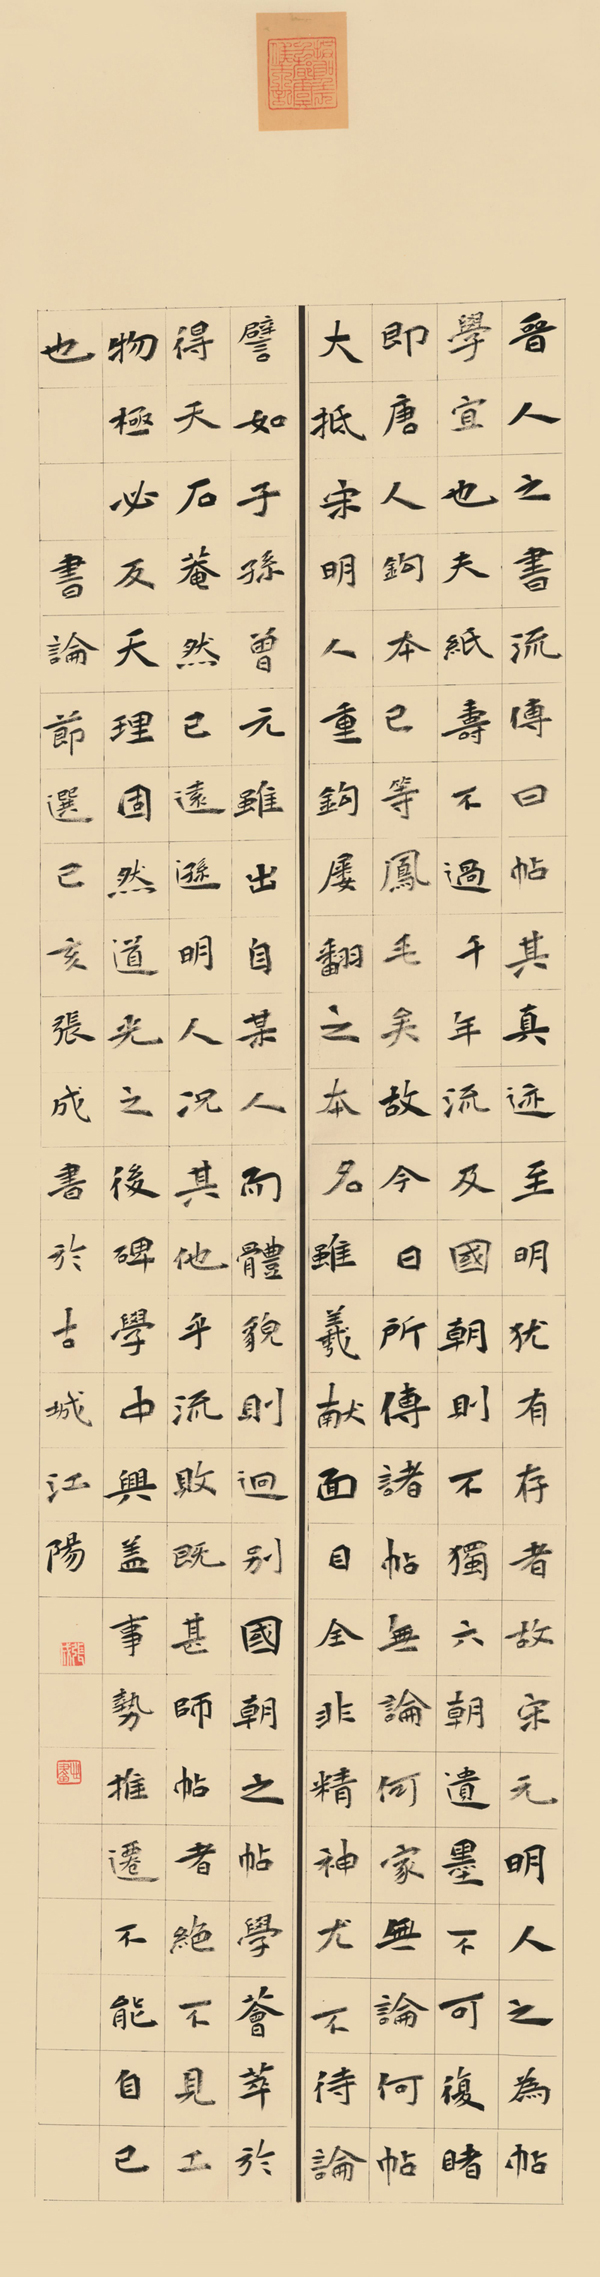 晉人之書流傳曰帖其真迹至明犹有存者故宋元明人之為帖
學宜也夫紙壽不過千年流及國朝則不獨六朝遺墨不可復睹
即唐人鉤本已等鳳毛矣故今日所傳諸帖無論何家無論何帖
大抵宋明人重鉤屡翻之本名雖羲献面目全非精神尤不待論
譬如子孫曾元雖出自某人而體貌則迥别國朝之帖學薈萃於
得天石菴然已遠遜明人况其他乎流敗既甚師帖者絶不見工
物極必反天理固然道光之後碑學中興盖事勢推遷不能自已
也
書論節選己亥張成書於古城江陽